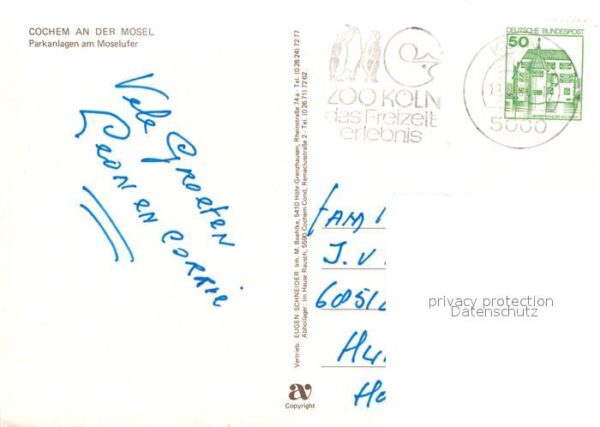 COCHEM AN DER MOSEL
Parkanlagen am Moselufer
Vele Groeten
Leon en Corrie
Vertrieb: EUGEN SCHNEIDER Inh. M. Boehlke, 5410 Höhr-Grenzhausen, Rheinstraße 74a · Tel. (0 26 24) 72 77
Abhollager: Im Hause Rausch, 5590 Cochem-Cond, Remaclusstraße 2 · Tel. (0 26 71) 72 62
av
Copyright
ZOO KÖLN
das Freizeit
erlebnis
5000
DEUTSCHE BUNDESPOST
50
FAM
J. V
6085
Hu
Ho
privacy protection
Datenschutz